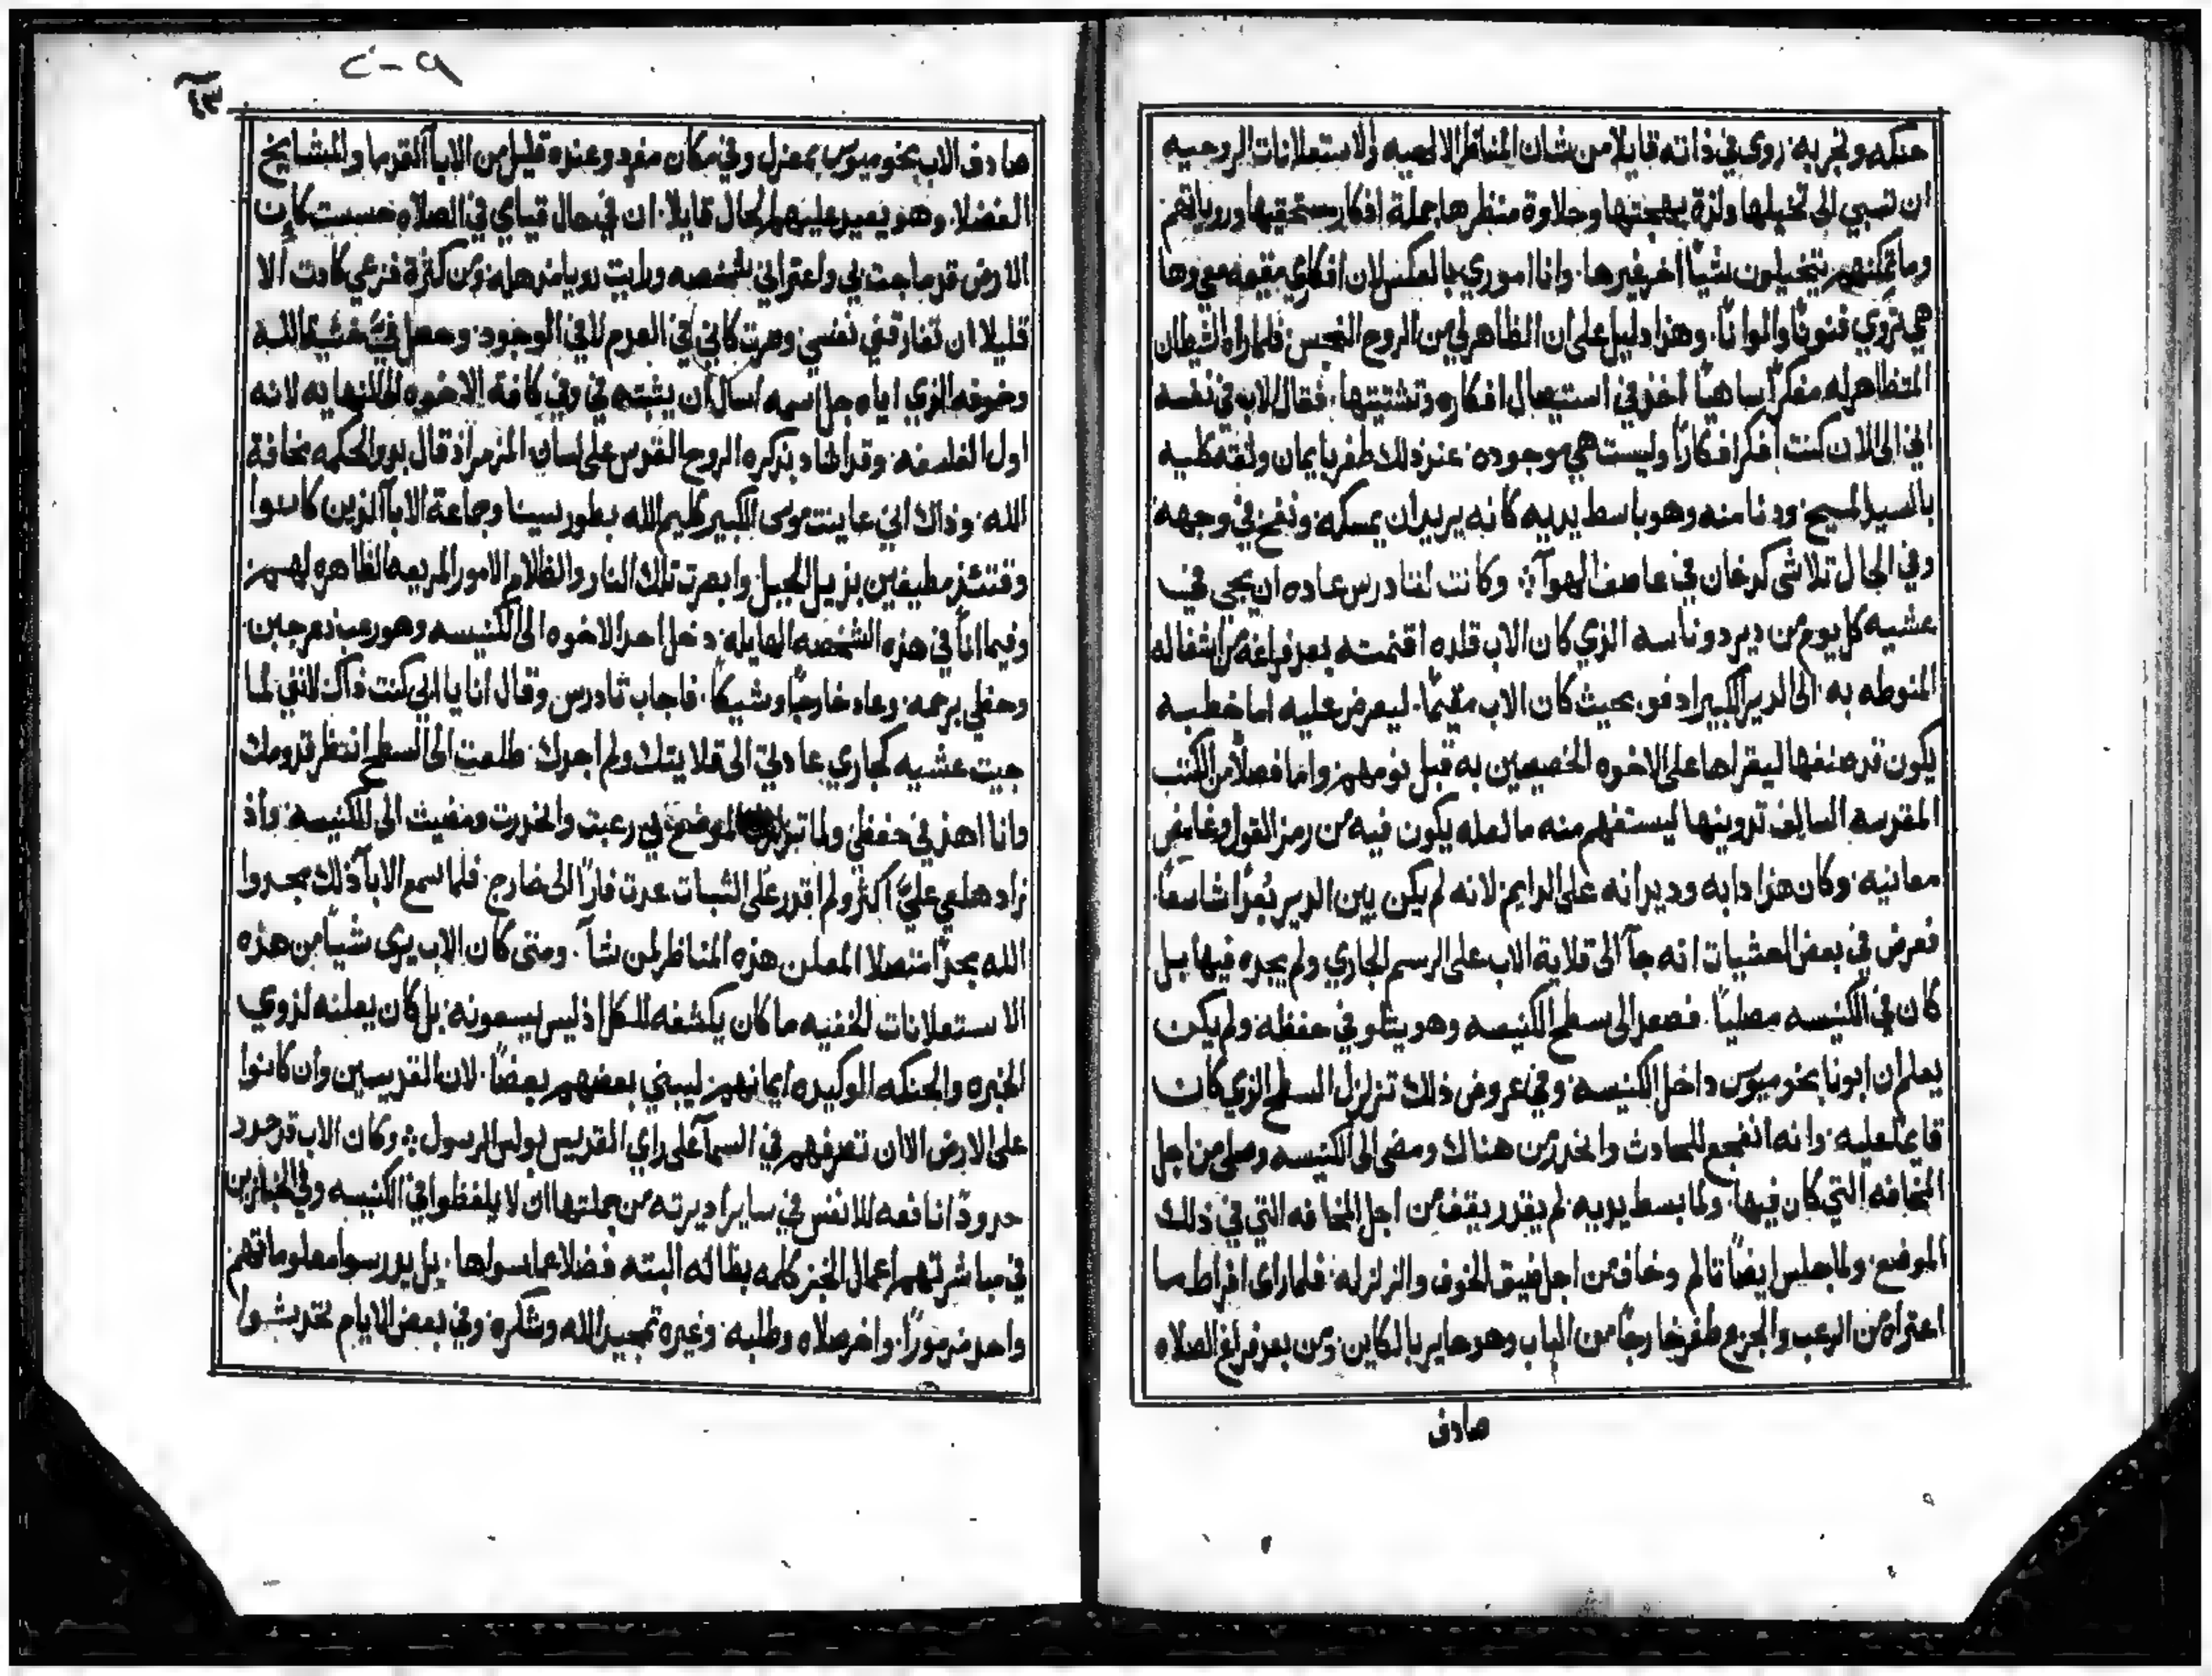 حنكه وتجربه. روى في ذاته قايلا من شان المناظر الالهيه والاستعلانات الروحيه
ان تسبي الى تخيلها ولذة بهجتها وحلاوة منظرها جملة افكار مستحقيها ورويا تهم
وما تمكنهم يتخيلون شياً اخر غيرها. وانا اموري بالعكس لان افكاري مقيمه معي وها
هي تروي فنوناً والواناً. وهذا دليل على ان الظاهر لي من الروح النجس فلما راه الشيطان
المتظاهر له مفكراً ساهياً اخذ في استيصال افكاره وتشتيتها. فقال الاب في نفسه
اني الى الان كنت افكر افكاراً وليست هي موجوده. عند ذلك طفر بايمان وثقه كليه
بالسيد المسيح. ودنا منه وهو باسط يديه كانه يريد ان يمسكه. ونفخ في وجهه
وفي الحال تلاشى كدخان في عاصف الهوآ ؞ وكانت لثادرس عاده ان يجي في
عشيه كل يوم من دير دوناسه الذي كان الاب قلده اقنمته بعد فراغه من اشغاله
المنوطه به. الى الدير الكبير ادفو. بحيث كان الاب مقيماً. ليعرض عليه اما خطبه
يكون قد صنفها ليقراها على الاخوه الخصيصين به قبل نومهم. واما فصلاً من الكتب
المقدسه السالف تدوينها ليستفهم منه ما لعله يكون فيه من رمز القول وغامض
معانيه. وكان هذا دابه وديدانه على الدايم. لانه لم يكن بين الدير بُعداً شاسعاً
فعرض في بعض العشيات انه جآ الى قلاية الاب على الرسم الجاري ولم يجده فيها بل
كان في الكنيسه مصلياً. فصعد الى سطح الكنيسه وهو يتلو في حفظه. ولم يكن
يعلم ان ابونا بخوميوس داخل الكنيسه. وفي عروض ذلك تزلزل السطح الذي كان
قايماً عليه. وانه انفجع للحادث وانحدر من هناك ومضى الى الكنيسه وصلى من اجل
المخافه التي كان فيها. ولما بسط يديه لم يقدر يقف من اجل المخافه التي في ذلك
الموضع. ولما جلس ايضاً تالم وخاف من اجل ضيق الخوف والزلزله. فلما راى افراط ما
اعتراه من الرعب والجزع طفر خارجاً من الباب وهو حاير بالكاين. ومن بعد فراغ الصلاه
صادف
٢٠٩
٤٣
صادف الاب بخوميوس بمعزل وفي مكان مفرد وعنده قليل من الابآ القدما والمشايخ
الفضلا. وهو يعبر عليهم الحال قايلا. ان في حال قيامي في الصلاه حسبت كان
الارض قد ماجت بي واعتراني شخصه ورايت رويا مذهله. ومن كثرة فزعي كادت الا
قليلا ان تفارقني نفسي وصرت كاني في العدم لا في الوجود. وحصل فيّ خشية الله
وخوفه الذي اياه جل اسمه اسال ان يثبته في وفي كافة الاخوه الى النهايه لانه
اول الفلسفه. وقد اشاد بذكره الروح القدس على لسان المزمر اذ قال بدو الحكمه مخافة
الله. وذاك اني عاينت موسى الكبير كليم الله بطور سينا وجماعة الابآ الذين كانوا
وقتئذ مطيفين بذيل الجبل وابصرت تلك النار والظلام والامور المريعه الظاهره لهم.
وفيما انا في هذه الشخصه الهايله. دخل احد الاخوه الى الكنيسه وهو رعب فزع جبين
وحظي برحمه. وعاد خارجاً وشيكاً. فاجاب ثادرس وقال انا يا ابي كنت ذاك لانني لما
جيت عشيه كجاري عادتي الى قلايتك ولم اجدك. طلعت الى السطح انتظر قدومك
وانا اهذ في حفظي ولما تزلزل الموضع بي رعبت وانحدرت ومضيت الى الكنيسه. واذ
زاد هلعي عليّ اكثر ولم اقدر على الثبات عدت فاراً الى خارج. فلما سمع الابآ ذلك مجدوا
الله مجداً متصلا المعلن هذه المناظر لمن شآ. ومتى كان الاب يرى شياً من هذه
الاستعلانات الخفيه ما كان يكشفه للكل اذ ليس يسعونه. بل كان يعلنه لذوي
الخبره والحنكه الوكيده ايمانهم ليبني بعضهم بعضاً. لان القديسين وان كانوا
على الارض الا ان تصرفهم في السمآ على راي القديس بولس الرسول ؞ وكان الاب قد حدد
حدوداً نافعه للانفس في ساير اديرته من جملتها ان لا يلفظوا في الكنيسه وفي الخبازين
في مباشرتهم اعمال الخبز كلمه بطاله البته فضلا عما سواها. بل يدرسوا معلوماتهم
واحد مزموراً. واخر صلاه وطلبه. وغيره تمجيد الله وشكره وفي بعض الايام تحدثوا